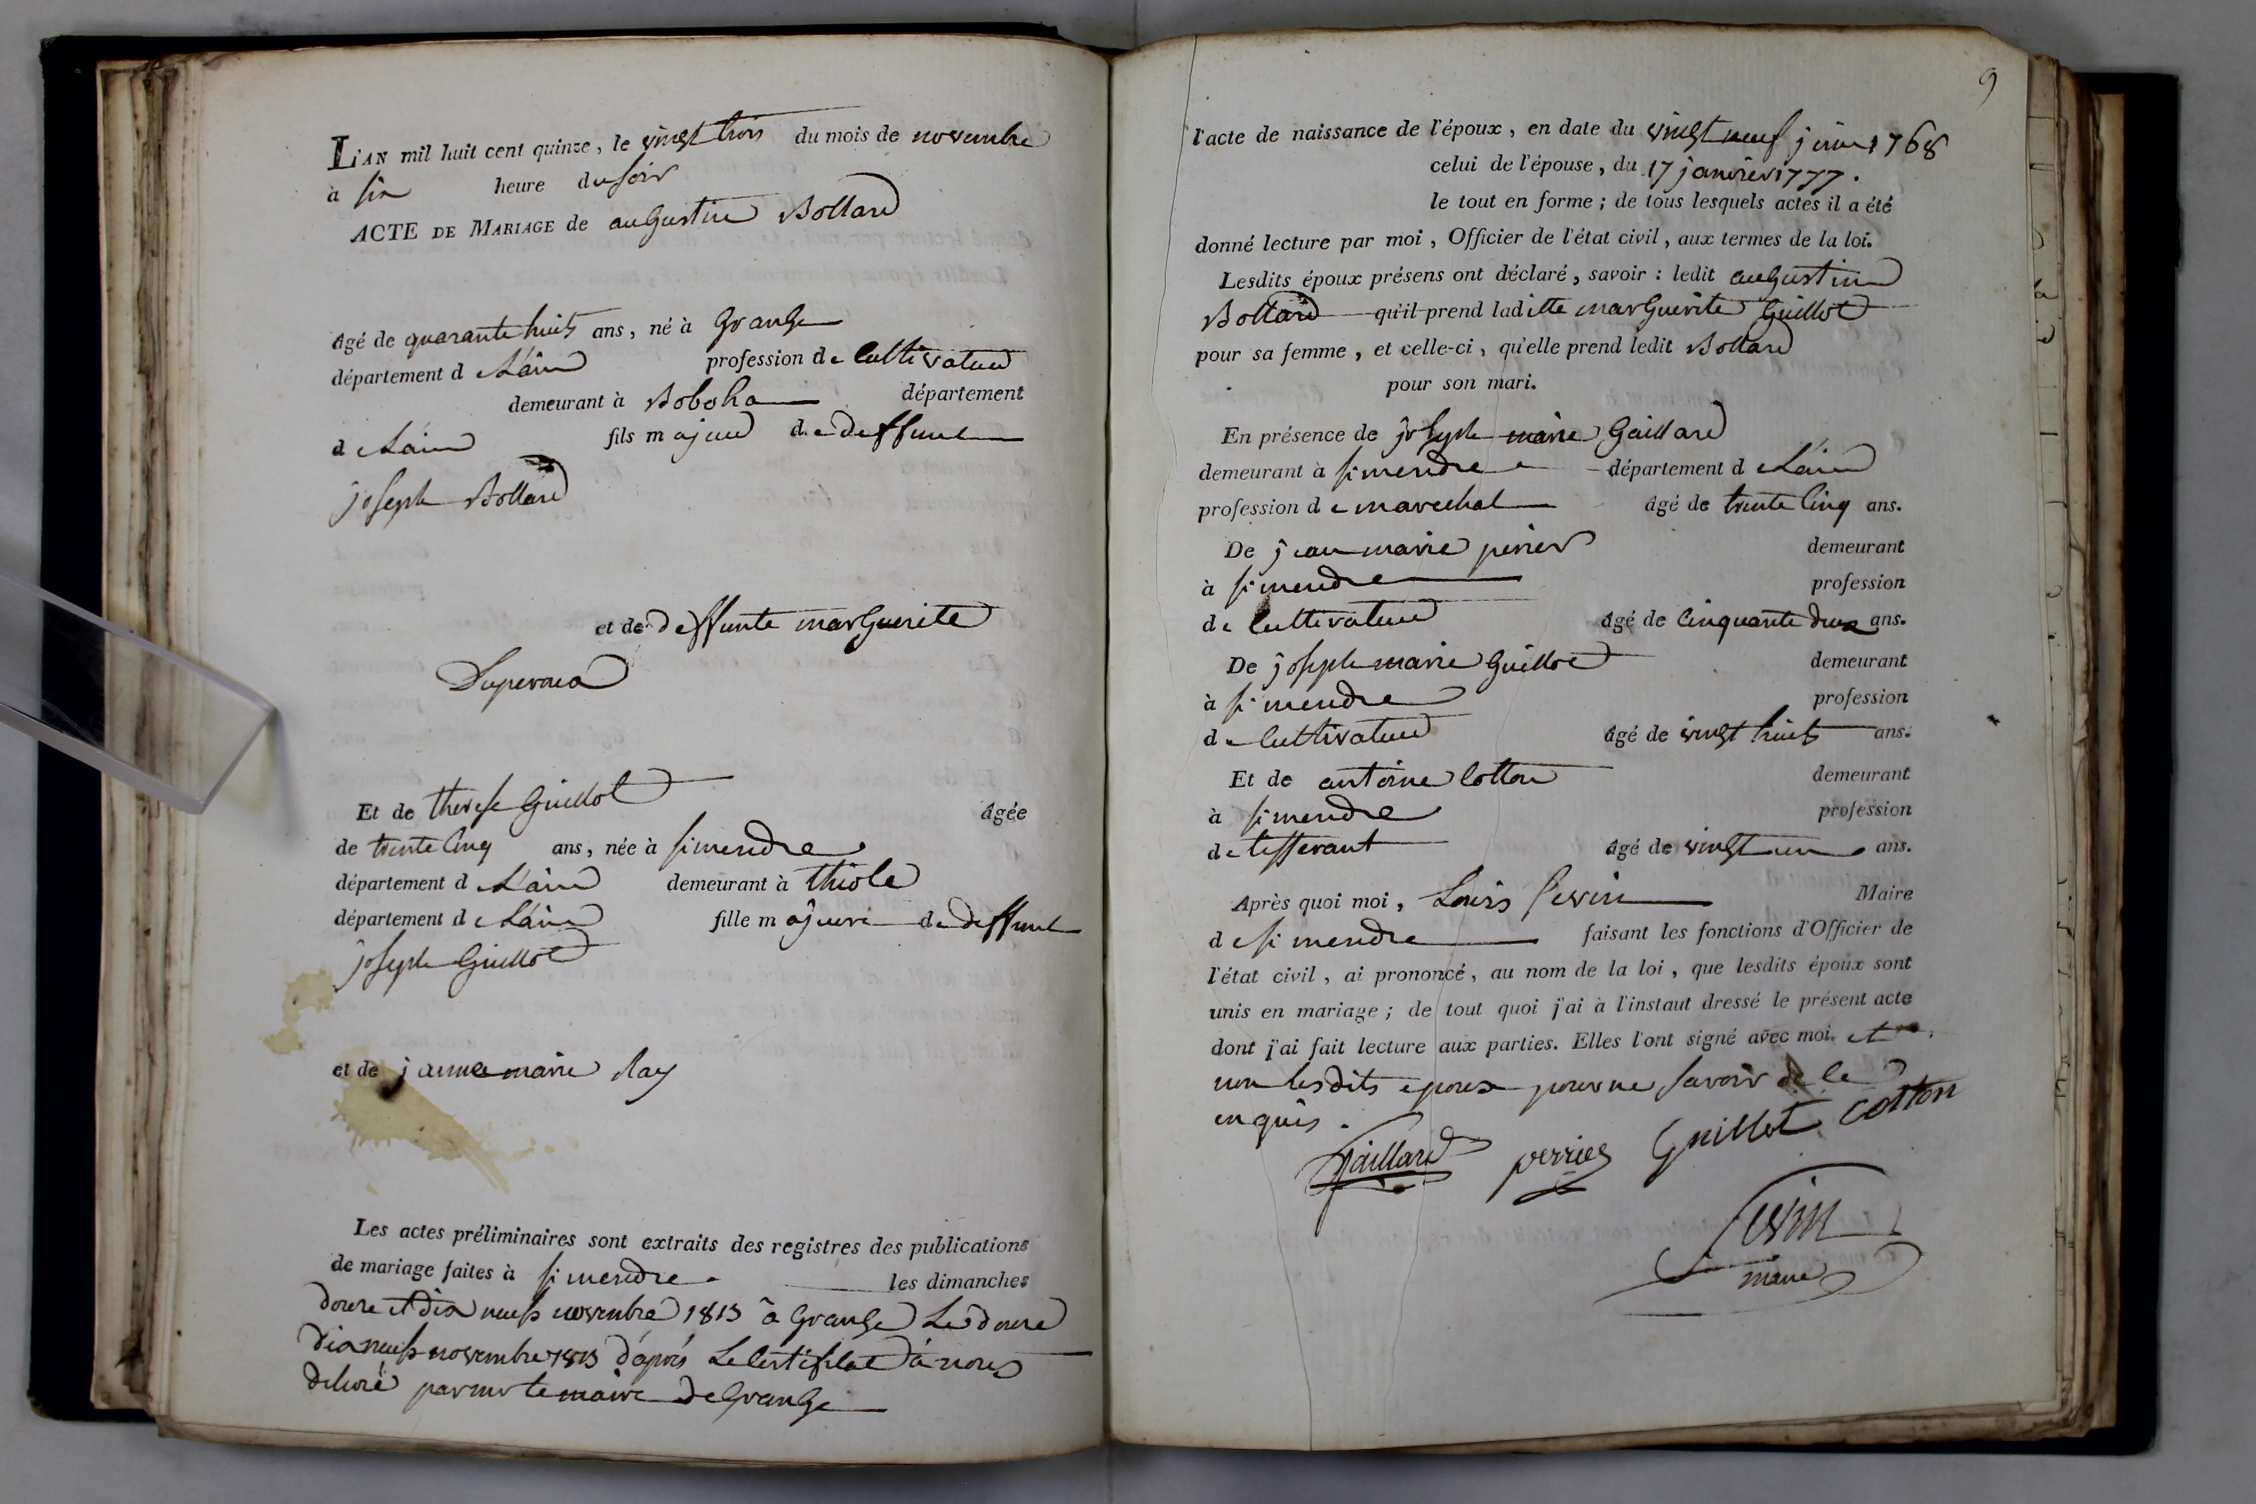 L'AN mil huit cent quinze, le vingt trois du mois de novembre
à six heure du soir
ACTE DE MARIAGE de augustin Bottard
âgé de quarante huit ans, né à Grange
département de L'ain profession de Cultivateur
demeurant à Boboha département
de L'ain fils majeur de deffunt
joseph Bottard
et de deffunte marguerite
Et de therese Guillot âgée
de trente Cinq ans, née à simendre
département de L'ain demeurant à thiole
département de L'ain fille majeure de deffunt
joseph Guillot
et de janne marie Ray
Les actes préliminaires sont extraits des registres des publications
de mariage faites à simendre les dimanches
douze et dix neuf novembre 1815 à Grange Le douze
dix neuf novembre 1815 d'après Le Certificat à nous
delivré par mr le maire de Grange
9
l'acte de naissance de l'époux, en date du vingt neuf juin 1768
celui de l'épouse, du 17 janvier 1777.
le tout en forme ; de tous lesquels actes il a été
donné lecture par moi, Officier de l'état civil, aux termes de la loi.
Lesdits époux présens ont déclaré, savoir : ledit augustin
Bottard qu'il prend laditte marguerite Guillot
pour sa femme, et celle-ci, qu'elle prend ledit Bottard
pour son mari.
En présence de joseph marie Gaillard
demeurant à simendre département de L'ain
profession de marechal âgé de trente Cinq ans.
De jean marie perier demeurant
à simendre profession
de Cultivateur âgé de Cinquante deux ans.
De joseph marie Guillot demeurant
à simendre profession
de Cultivateur âgé de vingt huit ans.
Et de antoine Cotton demeurant
à simendre profession
de tisserant âgé de vingt un ans.
Après quoi moi, Louis sevin Maire
de simendre faisant les fonctions d'Officier de
l'état civil, ai prononcé, au nom de la loi, que lesdits époux sont
unis en mariage ; de tout quoi j'ai à l'instaut dressé le présent acte
dont j'ai fait lecture aux parties. Elles l'ont signé avec moi. et
non lesdits epoux pour ne savoir de ce
enquis.
Gaillard perrier Guillot Cotton
sevin
maire